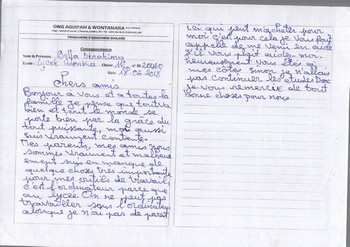 ONG AGUIPAH & WONTANARA
PROGRAMME PARRAINAGE SCOLAIRE
Correspondance
Nom & Prénoms :
Ecole : Lycée Classe : N°
Date : 2018
Chers amis
Bonjour à vous et à toutes la
famille je pense que tout va
bien et tout le monde se
porte bien par la grâce du
tout puissante, moi aussi
suis vraiment contente
Mes parents, mes amis nous
sommes vraiment et malheureu
ement suis en manque de
quelque choses très importante
pour mes outils de travails
c'est l'ordinateur parce que
au lycée on ne peut pas
travailler sans l'ordinateur
alors que je n'ai pas de parent
ici qui peut m'acheter pour
moi c'est pour cela je vous fait
appelle de me venir en aide
s'il vous plaît aidez-moi.
heureusement vous êtes à
mes côtés sinon je n'allais
pas continuer les études Donc
je vous remercie de tout
bonne choses pour nous